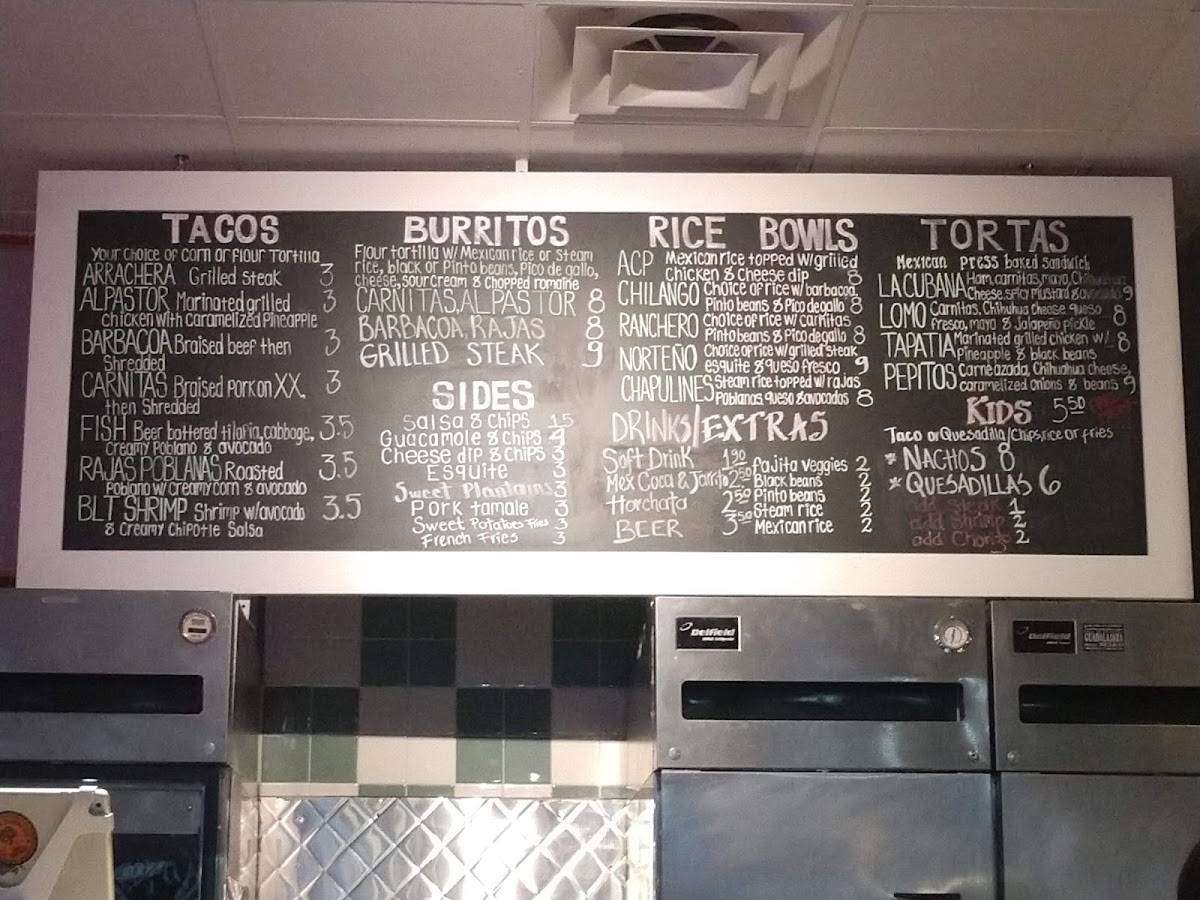 TACOS
Your choice of corn or flour Tortilla
ARRACHERA Grilled steak 3
ALPASTOR Marinated grilled 3
chicken with caramelized Pineapple
BARBACOA Braised beef then 3
Shredded
CARNITAS Braised Pork on XX, 3
then Shredded
FISH Beer battered tilapia, cabbage, 3.5
Creamy Poblano & avocado
RAJAS POBLANAS Roasted 3.5
Poblano w/ creamy corn & avocado
BLT SHRIMP Shrimp w/avocado 3.5
& Creamy Chipotle Salsa
BURRITOS
Flour tortilla w/ Mexican rice or Steam
rice, black or Pinto beans, Pico de gallo,
cheese, sour cream & chopped romaine
CARNITAS, ALPASTOR 8
BARBACOA, RAJAS 8
GRILLED STEAK 9
SIDES
Salsa & Chips 1.5
Guacamole & Chips 4
Cheese dip & Chips 3
Esquite 3
Sweet Plantains 3
Pork tamale 3
Sweet Potatoes Fries 3
French Fries 3
RICE BOWLS
ACP Mexican rice topped w/ grilled
Chicken & Cheese dip 8
CHILANGO Choice of rice w/ barbacoa,
Pinto beans & Pico de gallo 8
RANCHERO Choice of rice w/ carnitas
Pinto beans & Pico de gallo 8
NORTEÑO Choice of rice w/ grilled steak,
esquite & queso fresco 9
CHAPULINES Steam rice topped w/ rajas
Poblanas queso & avocados 8
DRINKS/EXTRAS
Soft Drink 1.90
Mex Coca & Jarrito 2.50
Horchata 2.50
BEER 3.50
Fajita veggies 2
Black beans 2
Pinto beans 2
Steam rice 2
Mexican rice 2
TORTAS
Mexican press baked sandwich
LA CUBANA Ham, carnitas, mayo, Chihuahua
Cheese, spicy mustard & avocado 9
LOMO Carnitas, Chihuahua cheese queso
fresco, mayo & Jalapeño pickle 8
TAPATIA Marinated grilled chicken w/
pineapple & black beans 8
PEPITOS Carne azada, Chihuahua cheese,
caramelized onions & beans 9
KIDS 5.50
Taco or Quesadilla/Chips, rice or fries
* NACHOS 8
* QUESADILLAS 6
add Steak 1
add Shrimp 2
add Chorizo 2
Delfield
Delfield
GUADALAJARA